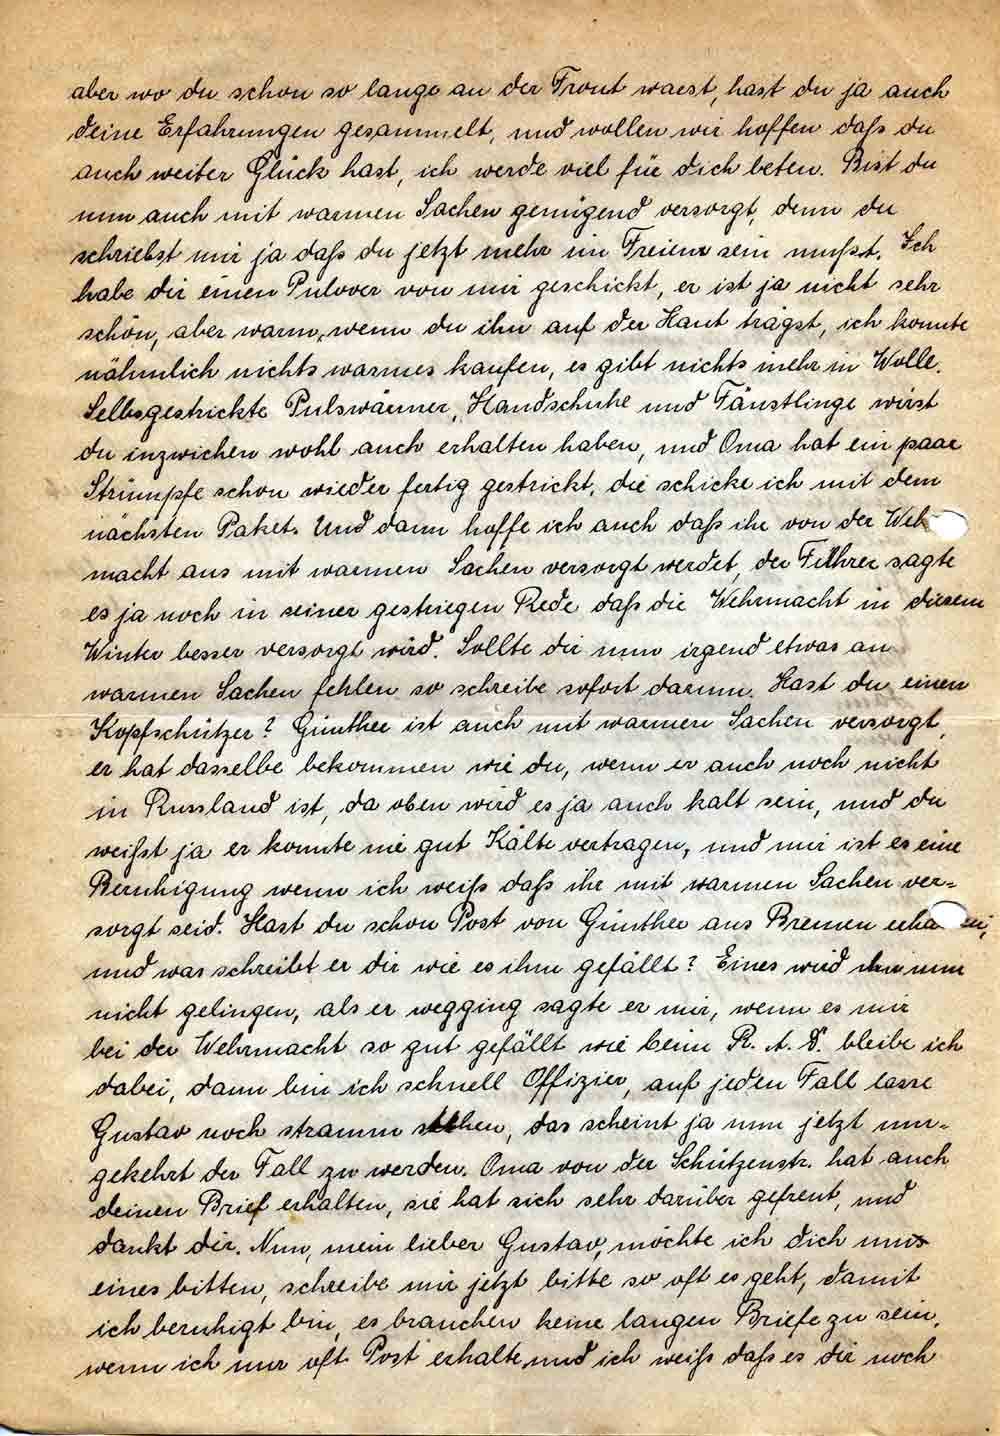 aber wo du schon so lange an der Front warst, hast du ja auch
deine Erfahrungen gesammelt, und wollen wir hoffen daß du
auch weiter Glück hast, ich werde viel für dich beten. Bist du
nun auch mit warmen Sachen genügend versorgt, denn du
schriebst mir ja daß du jetzt mehr im Freien sein mußt. Ich
habe dir einen Pulover von mir geschickt, er ist ja nicht sehr
schön, aber warm, wenn du ihn auf der Haut trägst, ich konnte
nähmlich nichts warmes kaufen, es gibt nichts mehr in Wolle.
Selbsgestrickte Pulswärmer, Handschuhe und Fäustlinge wirst
du inzwichen wohl auch erhalten haben, und Oma hat ein paar
Strümpfe schon wieder fertig gestrickt, die schicke ich mit dem
nächsten Paket. Und dann hoffe ich auch daß ihr von der Weh
macht aus mit warmen Sachen versorgt werdet, der Führer sagte
es ja noch in seiner gestriegen Rede daß die Wehrmacht in diesem
Winter besser versorgt wird. Sollte dir nun irgend etwas an
warmen Sachen fehlen so schreibe sofort darum. Hast du einen
Kopfschützer? Günther ist auch mit warmen Sachen versorgt,
er hat dasselbe bekommen wie du, wenn er auch noch nicht
in Russland ist, da oben wird es ja auch kalt sein, und du
weißt ja er konnte nie gut Kälte vertragen, und mir ist es eine
Beruhigung wenn ich weiß daß ihr mit warmen Sachen ver=
sorgt seid. Hast du schon Post von Günther aus Bremen erha en,
und was schreibt er dir wie es ihm gefällt? Eines wird ihm nun
nicht gelingen, als er wegging sagte er mir, wenn es mir
bei der Wehrmacht so gut gefällt wie beim R. A. D. bleibe ich
dabei, dann bin ich schnell Offizier, auf jeden Fall lasse
Gustav noch stramm stehen, das scheint ja nun jetzt um=
gekehrt der Fall zu werden. Oma von der Schützenstr. hat auch
deinen Brief erhalten, sie hat sich sehr darüber gefreut, und
dankt dir. Nun, mein lieber Gustav, möchte ich dich um
eines bitten, schreibe mir jetzt bitte so oft es geht, damit
ich beruhigt bin, es brauchen keine langen Briefe zu sein,
wenn ich nur oft Post erhalte, und ich weiß daß es dir noch